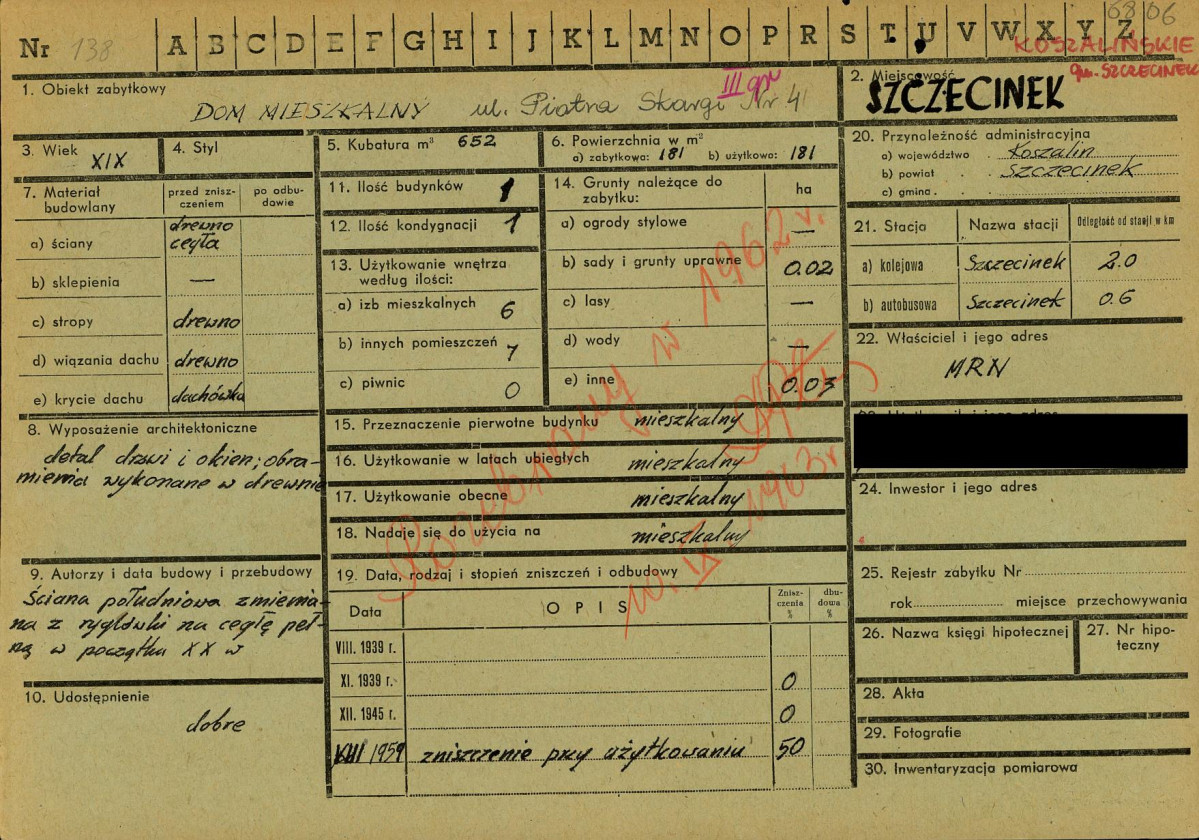 6806
Nr 138 A B C D E F G H I J K L M N O P R S T U V W X Y Z
KOSZALIŃSKIE
gm. SZCZECINEK
1. Obiekt zabytkowy
III gr
DOM MIESZKALNY ul. Piotra Skargi Nr 41
2. Miejscowość
SZCZECINEK
3. Wiek XIX
4. Styl
5. Kubatura m³ 652
6. Powierzchnia w m²
a) zabytkowa: 181 b) użytkowa: 181
20. Przynależność administracyjna
a) województwo Koszalin
b) powiat Szczecinek
c) gmina
7. Materiał budowlany
przed zniszczeniem
po odbudowie
a) ściany drewno cegła
b) sklepienia —
c) stropy drewno
d) wiązania dachu drewno
e) krycie dachu dachówka
11. Ilość budynków 1
12. Ilość kondygnacji 1
13. Użytkowanie wnętrza
według ilości:
a) izb mieszkalnych 6
b) innych pomieszczeń 7
c) piwnic 0
14. Grunty należące do
zabytku:
ha
a) ogrody stylowe —
b) sady i grunty uprawne 0.02
c) lasy —
d) wody —
e) inne 0.03
21. Stacja Nazwa stacji Odległość od stacji w km
a) kolejowa Szczecinek 2.0
b) autobusowa Szczecinek 0.6
22. Właściciel i jego adres
MRN
8. Wyposażenie architektoniczne
detal drzwi i okien; obra-
mienia wykonane w drewnie
15. Przeznaczenie pierwotne budynku mieszkalny
16. Użytkowanie w latach ubiegłych mieszkalny
17. Użytkowanie obecne mieszkalny
18. Nadaje się do użycia na mieszkalny
Rozebrany w 1962 r.
10.IX 1963r
24. Inwestor i jego adres
9. Autorzy i data budowy i przebudowy
Ściana południowa zmienia-
na z ryglówki na cegłę peł-
ną w początku XX w
10. Udostępnienie
dobre
19. Data, rodzaj i stopień zniszczeń i odbudowy
Data OPIS Zniszczenia % dbudowa %
VIII. 1939 r.
XI. 1939 r. 0
XII. 1945 r. 0
VIII 1959 zniszczenie przy użytkowaniu 50
25. Rejestr zabytku Nr
rok miejsce przechowywania
26. Nazwa księgi hipotecznej
27. Nr hipo-
teczny
28. Akta
29. Fotografie
30. Inwentaryzacja pomiarowa